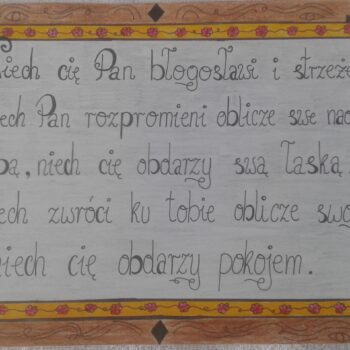 Niech cię Pan błogosławi i strzeże
ech Pan rozpromieni oblicze swe nad
bą, niech cię obdarzy swą łaską.
ech zwróci ku tobie oblicze swo
niech cię obdarzy pokojem.